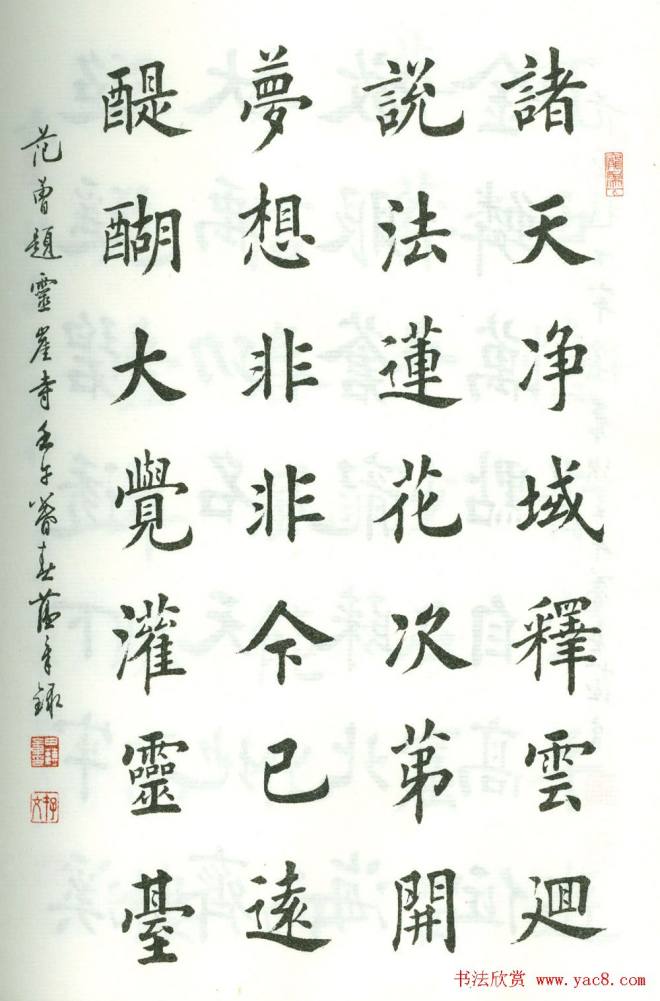 諸天净域釋雲迴
說法蓮花次第開
夢想非非今已遠
醍醐大覺灌靈臺
范曾題靈崖寺壬午暮春
书法欣赏 www.yac8.com